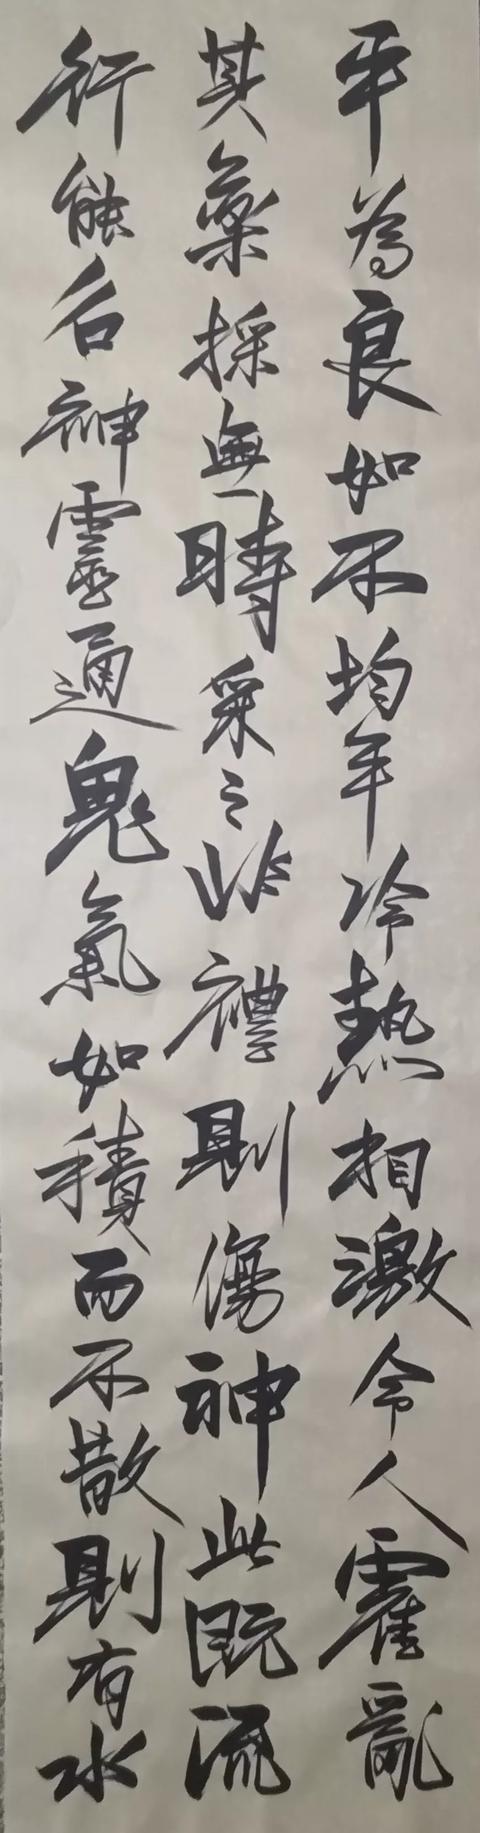 平為良如不均年冷熱相激令人霍亂
其藥採無時采之非禮則傷神此既流
行能名神靈通鬼氣如積而不散則有水